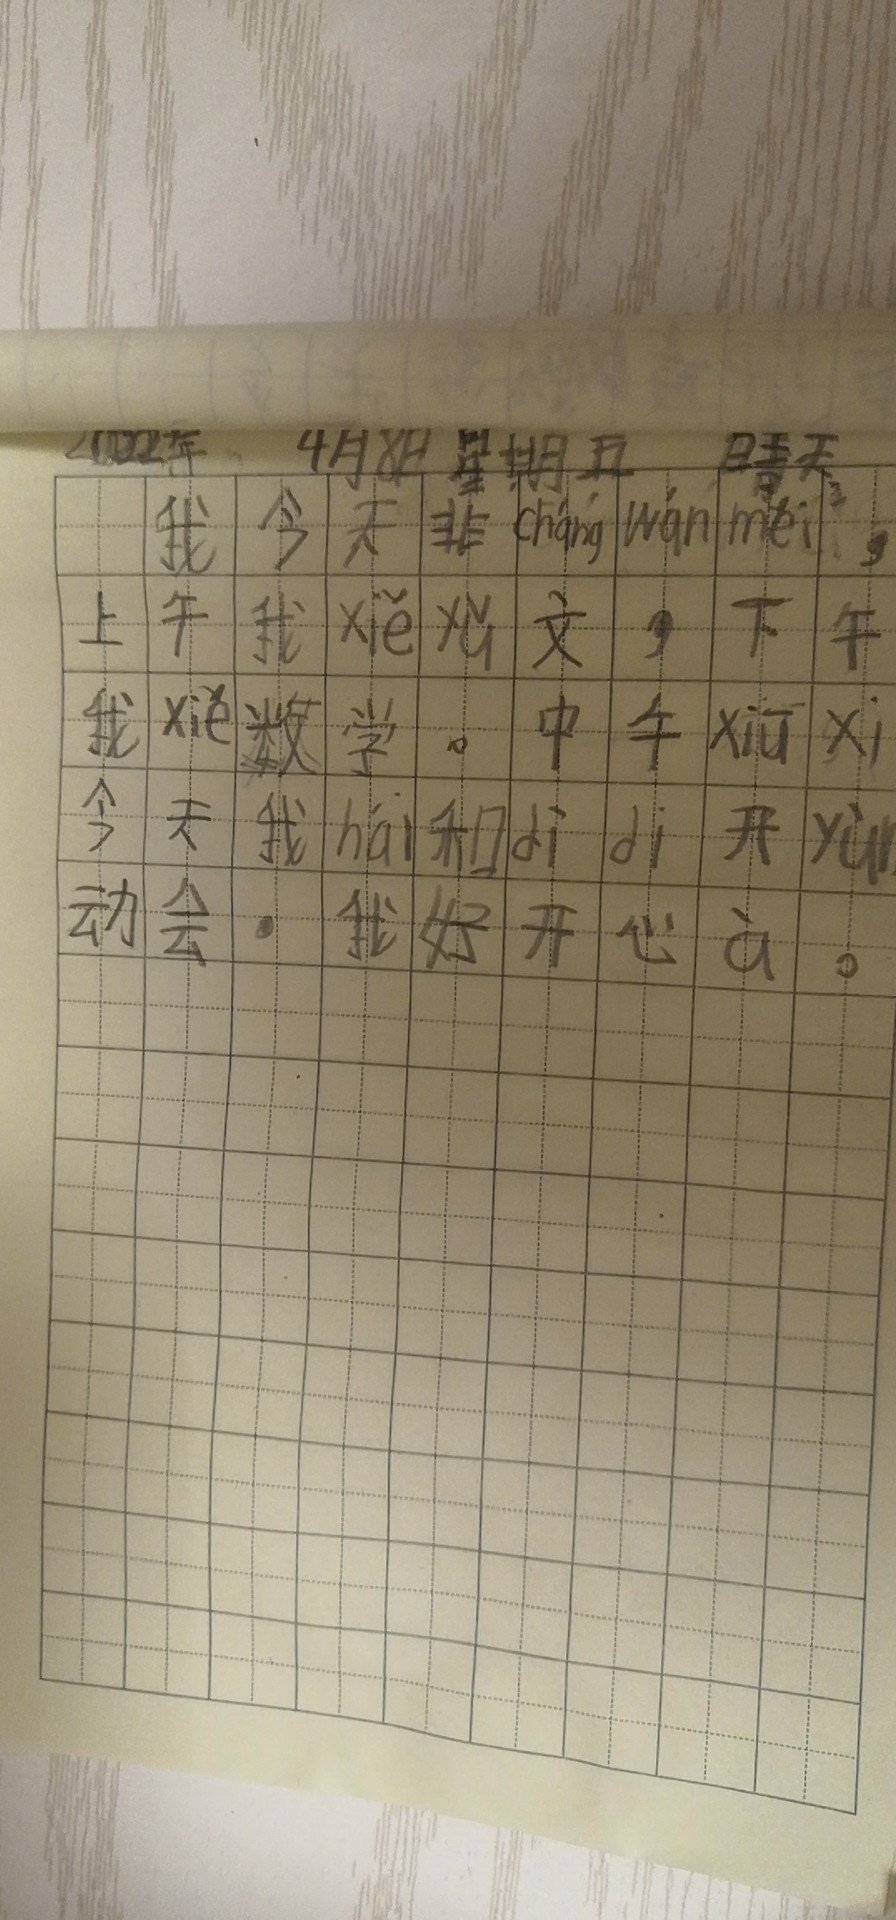 2022年 4月8日 星期五 晴天
我今天非cháng wán měi，
上午我xiě yǔ文，下午
我xiě数学。中午xiū xi
今天我hái和dì di开yùn
动会。我好开心à。